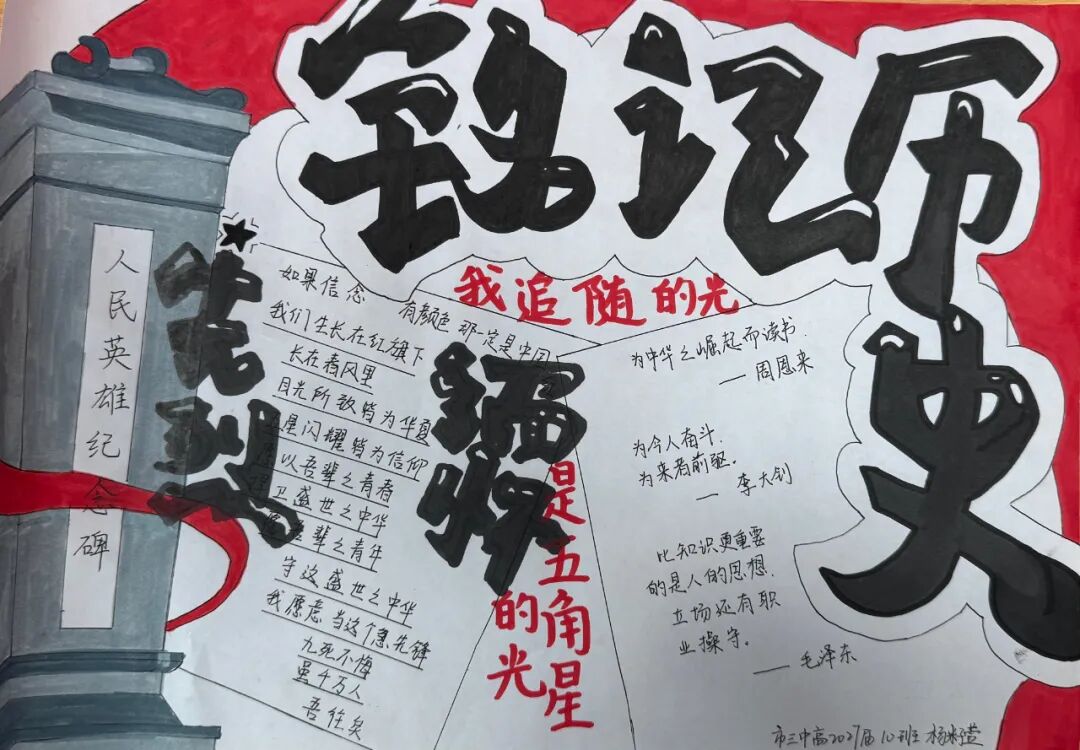 铭记历史
我追随的光
人民英雄纪念碑
如果信念
有颜色 那一定是中国
我们生长在红旗下
长在春风里
目光所致皆为华夏
五星闪耀皆为信仰
以吾辈之青春
卫盛世之中华
辈之青年
守这盛世之中华
我愿意当这个急先锋
九死不悔
虽千万人
吾往矣
是五角星
的光
为中华之崛起而读书
——周恩来
为今人奋斗.
为来者前驱.
—李大钊
比知识更重要
的是人的思想.
立场还有职
业操守.
——毛泽东
市三中高2027届10班 杨